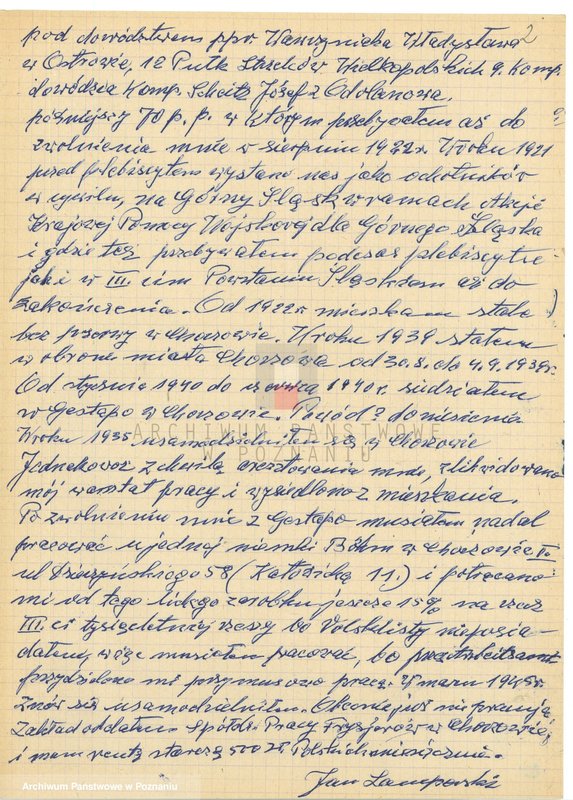 2
pod dowództwem ppor. Wawrzyniaka Władysława
w Ostrowie, 12 Pułk Strzelców Wielkopolskich 9. Komp.
dowódzca Komp. Scheitz Józef z Odolanowa.
późniejszy 70 p.p. w którym przebyłem aż do
zwolnienia mnie w sierpniu 1922r. W roku 1921
przed plebiscytem wysłano nas jako ochotników
w cywilu, na Górny Śląsk w ramach Akcji
Krajowej Pomocy Wojskowej dla Górnego Śląska
i gdzie też przebywałem podczas plebiscytu
jak i w III. cim Powstaniu Śląskiem aż do
zakończenia. Od 1922r mieszkam stale
bez przerwy w Chorzowie. W roku 1939 stałem
w obronie miasta Chorzowa od 30.8. do 4.9.1939r.
Od stycznia 1940 do czerwca 1940r. siedziałem
w Gestapo w Chorzowie. Powód? doniesienia
W roku 1935 usamodzielniłem się w Chorzowie
Jednakowoż z chwilą aresztowania mnie, zlikwidowano
mój warstat pracy i wysiedlono z mieszkania.
Po zwolnieniu mnie z Gestapo musiałem nadal
pracować u jednej niemki Böhm w Chorzowie
ul Dzierżyńskiego 58 (Katowicka 11.) i potrącano
mi od tego lichego zarobku jeszcze 15% na rzecz
III. ci tysiącletniej rzeszy bo Volkslisty nieposia-
dałem, więc musiałem pracować, bo Arbeitsamt
przydzielono mi przymusowo pracę. W marcu 1945r.
znów się usamodzielniłem. Obecnie już nie pracuję
Zakład oddałem Spółdz. Pracy Fryzjerów w Chorzowie,
i mam rentę starczą 500 Zł Polskich miesięcznie.
Jan
ARCHIWUM PAŃSTWOWE
W POZNANIU
Archiwum Państwowe w Poznaniu